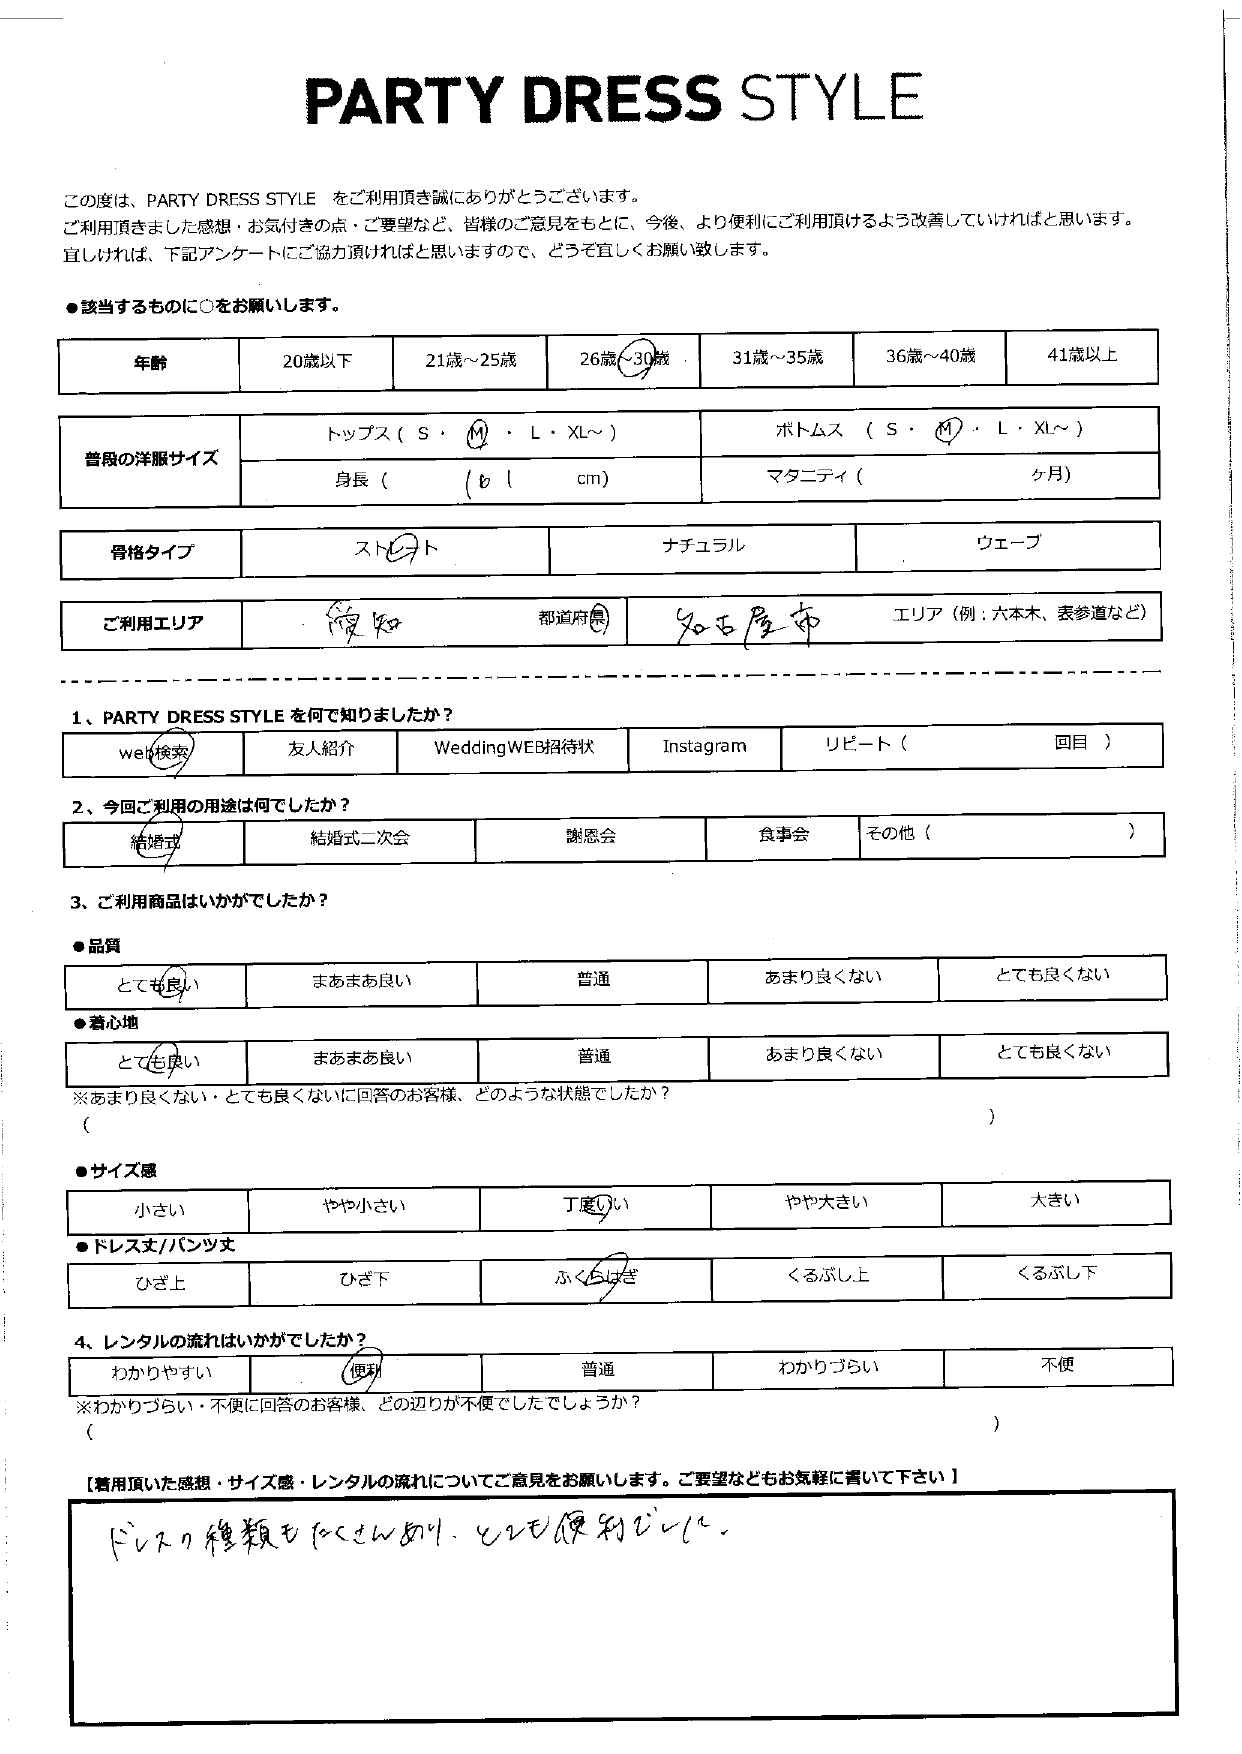 PARTY DRESS STYLE
この度は、PARTY DRESS STYLE をご利用頂き誠にありがとうございます。
ご利用頂きました感想・お気付きの点・ご要望など、皆様のご意見をもとに、今後、より便利にご利用頂けるよう改善していければと思います。
宜しければ、下記アンケートにご協力頂ければと思いますので、どうぞ宜しくお願い致します。
●該当するものに○をお願いします。
年齢 20歳以下 21歳～25歳 26歳～30歳 31歳～35歳 36歳～40歳 41歳以上
普段の洋服サイズ トップス ( S ・ M ・ L ・ XL～ ) ボトムス ( S ・ M ・ L ・ XL～ )
身長 ( 161 cm) マタニティ ( ヶ月)
骨格タイプ ストレート ナチュラル ウェーブ
ご利用エリア 愛知 都道府県 名古屋市 エリア（例：六本木、表参道など）
1、PARTY DRESS STYLE を何で知りましたか？
web検索 友人紹介 WeddingWEB招待状 Instagram リピート（ 回目 ）
2、今回ご利用の用途は何でしたか？
結婚式 結婚式二次会 謝恩会 食事会 その他（ ）
3、ご利用商品はいかがでしたか？
●品質
とても良い まあまあ良い 普通 あまり良くない とても良くない
●着心地
とても良い まあまあ良い 普通 あまり良くない とても良くない
※あまり良くない・とても良くないに回答のお客様、どのような状態でしたか？
（ ）
●サイズ感
小さい やや小さい 丁度いい やや大きい 大きい
●ドレス丈/パンツ丈
ひざ上 ひざ下 ふくらはぎ くるぶし上 くるぶし下
4、レンタルの流れはいかがでしたか？
わかりやすい 便利 普通 わかりづらい 不便
※わかりづらい・不便に回答のお客様、どの辺りが不便でしたでしょうか？
（ ）
【着用頂いた感想・サイズ感・レンタルの流れについてご意見をお願いします。ご要望などもお気軽に書いて下さい】
ドレスの種類もたくさんあり、とても便利でした。